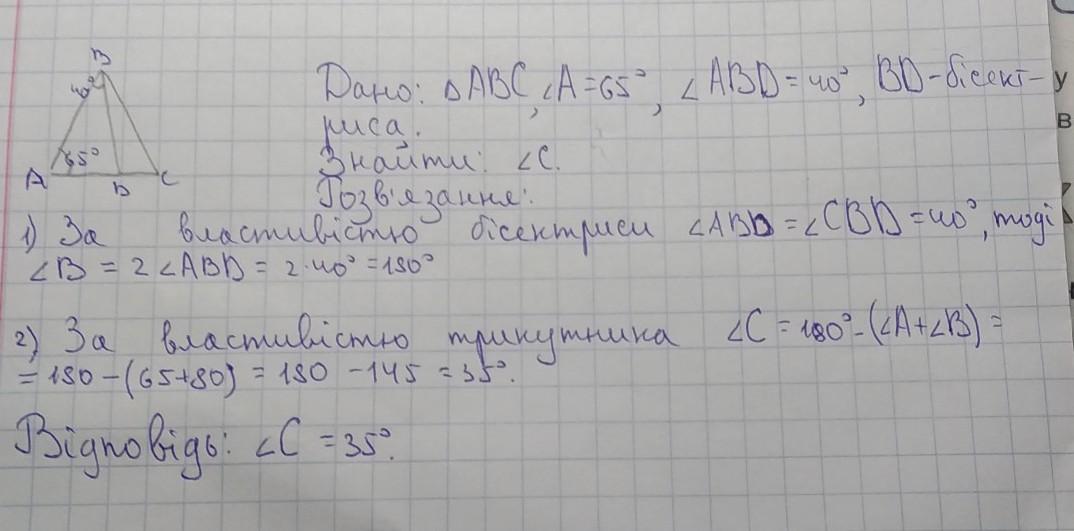 B
40°
65°
A
D
C
Дано: △ABC, ∠A=65°, ∠ABD=40°, BD-бісект-
риса.
Знайти: ∠C.
Розв'язання:
1) За властивістю бісектриси ∠ABD=∠CBD=40°, тоді
∠B = 2∠ABD = 2·40° = 180°
2) За властивістю трикутника ∠C = 180° - (∠A+∠B) =
= 180 - (65+80) = 180 - 145 = 35°.
Відповідь: ∠C = 35°.
у
в